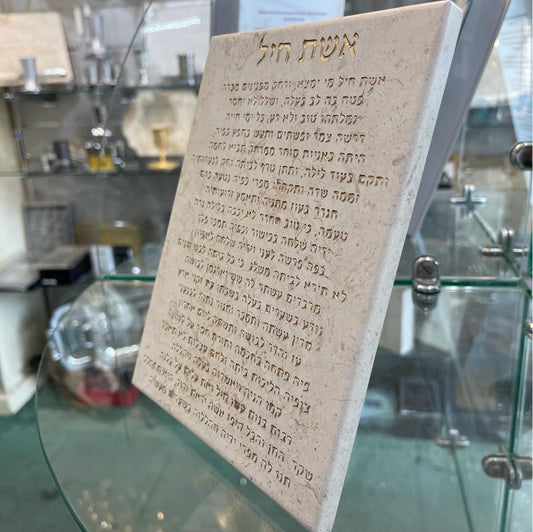 אשת חיל
אשת חיל מי ימצא, ורחק מפנינים מכרה
בטח בה לב בעלה, ושלל לא יחסר
גמלתהו טוב ולא רע, כל ימי חייה
דרשה צמר ופשתים ותעש בחפץ כפיה
היתה כאניות סוחר ממרחק תביא לחמה
ותקם בעוד לילה, ותתן טרף לביתה וחק לנערותיה
זממה שדה ותקחהו מפרי כפיה נטעה כרם
חגרה בעוז מתניה ותאמץ זרועותיה
טעמה, כי טוב סחרה לא יכבה בלילה נרה
ידיה שלחה בכישור וכפיה תמכו פלך
כפה פרשה לעני וידיה שלחה לאביון
לא תירא לביתה משלג, כי כל ביתה לבש שנים
מרבדים עשתה לה שש וארגמן לבושה
נודע בשערים בעלה בשבתו עם זקני ארץ
סדין עשתה ותמכר וחגור נתנה לכנעני
עוז והדר לבושה ותשחק ליום אחרון
פיה פתחה בחכמה ותורת חסד על לשונה
צופיה הליכות ביתה ולחם עצלות לא תאכל
קמו בניה ויאשרוה בעלה ויהללה
רבות בנות עשו חיל ואת עלית על כלנה
שקר החן והבל היופי אשה יראת ה' היא תתהלל
תנו לה מפרי ידיה ויהללוה בשערים מעשיה